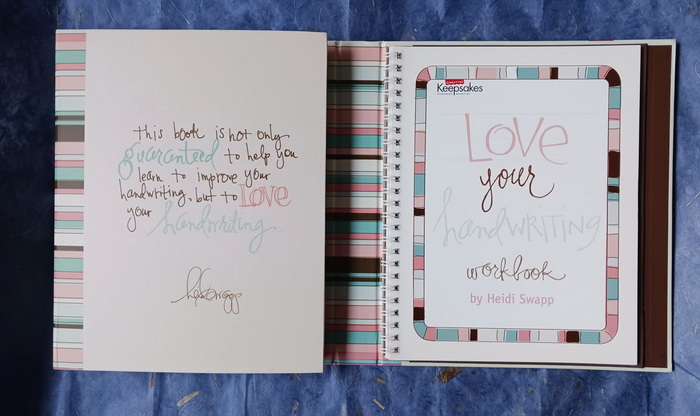 this book is not only
guaranteed to help you
learn to improve your
handwriting, but to LOVE
your handwriting
CREATING
Keepsakes
LOVE
your
handWRITING
workbook
by Heidi Swapp